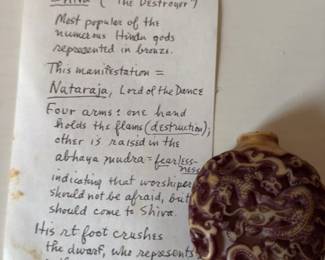 Shiva ("The Destroyer")
Most popular of the
numerous Hindu gods
represented in bronze.
This manifestation =
Nataraja, Lord of the Dance
Four arms: one hand
holds the flame (destruction);
other is raised in the
abhaya mudra = fearless-
ness
indicating that worshipers
should not be afraid, but
should come to Shiva.
His rt foot crushes
the dwarf, who represents